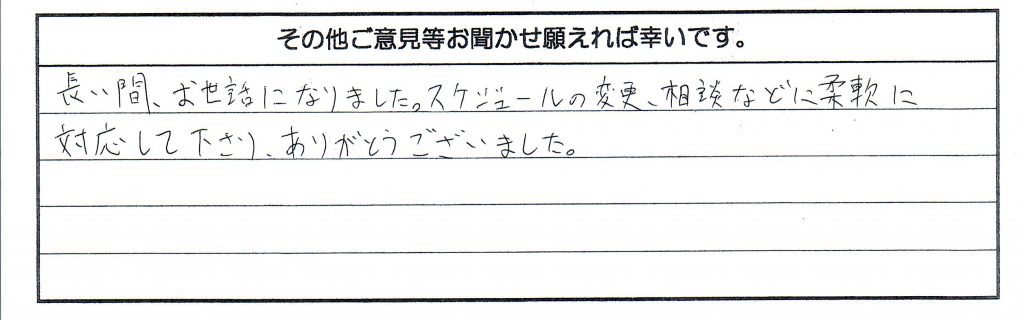 その他ご意見等お聞かせ願えれば幸いです。
長い間、お世話になりました。スケジュールの変更、相談などに柔軟に
対応して下さり、ありがとうございました。